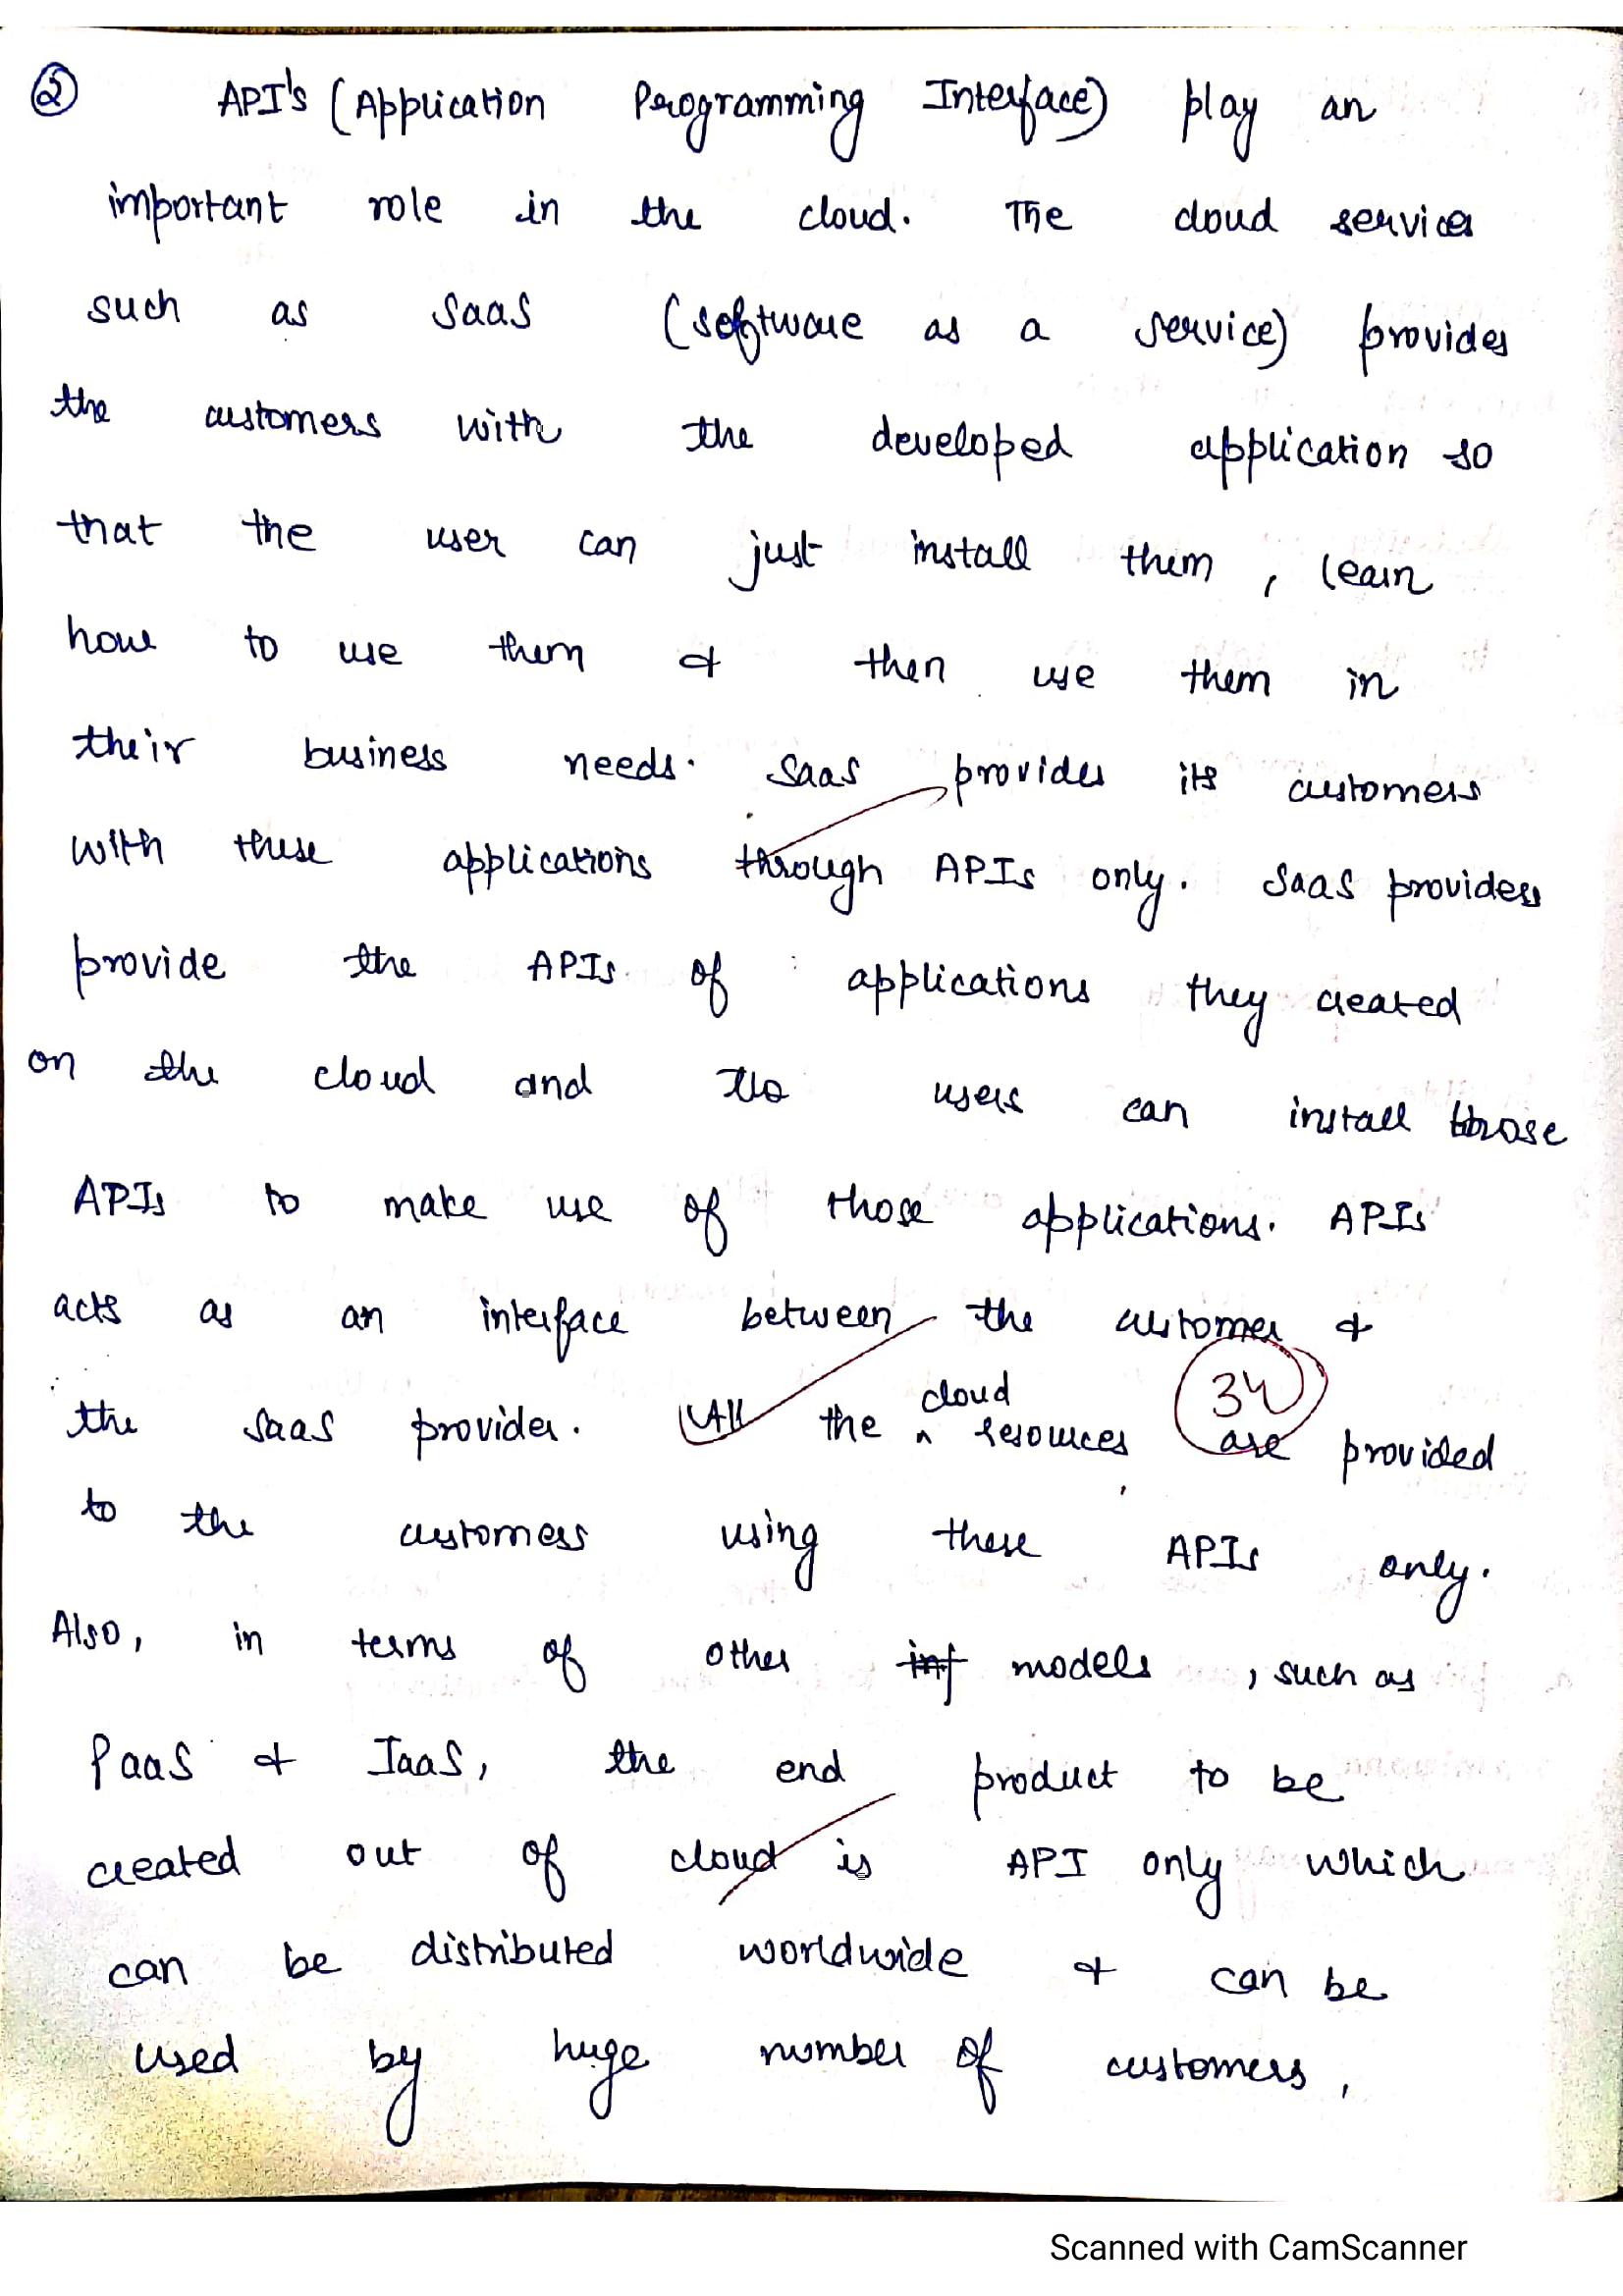 ② API's (Application Programming Interface) play an
important role in the cloud. The cloud services
such as SaaS (software as a service) provides
the customers with the developed application so
that the user can just install them, learn
how to use them & then use them in
their business needs. SaaS provides its customers
with these applications through APIs only. SaaS providers
provide the APIs of applications they created
on the cloud and the users can install those
APIs to make use of those applications. APIs
acts as an interface between the customer &
the SaaS provider. All the cloud resources are provided
34
to the customers using these APIs only.
Also, in terms of other inf models, such as
PaaS & IaaS, the end product to be
created out of cloud is API only which
can be distributed worldwide & can be
used by huge number of customers,
Scanned with CamScanner